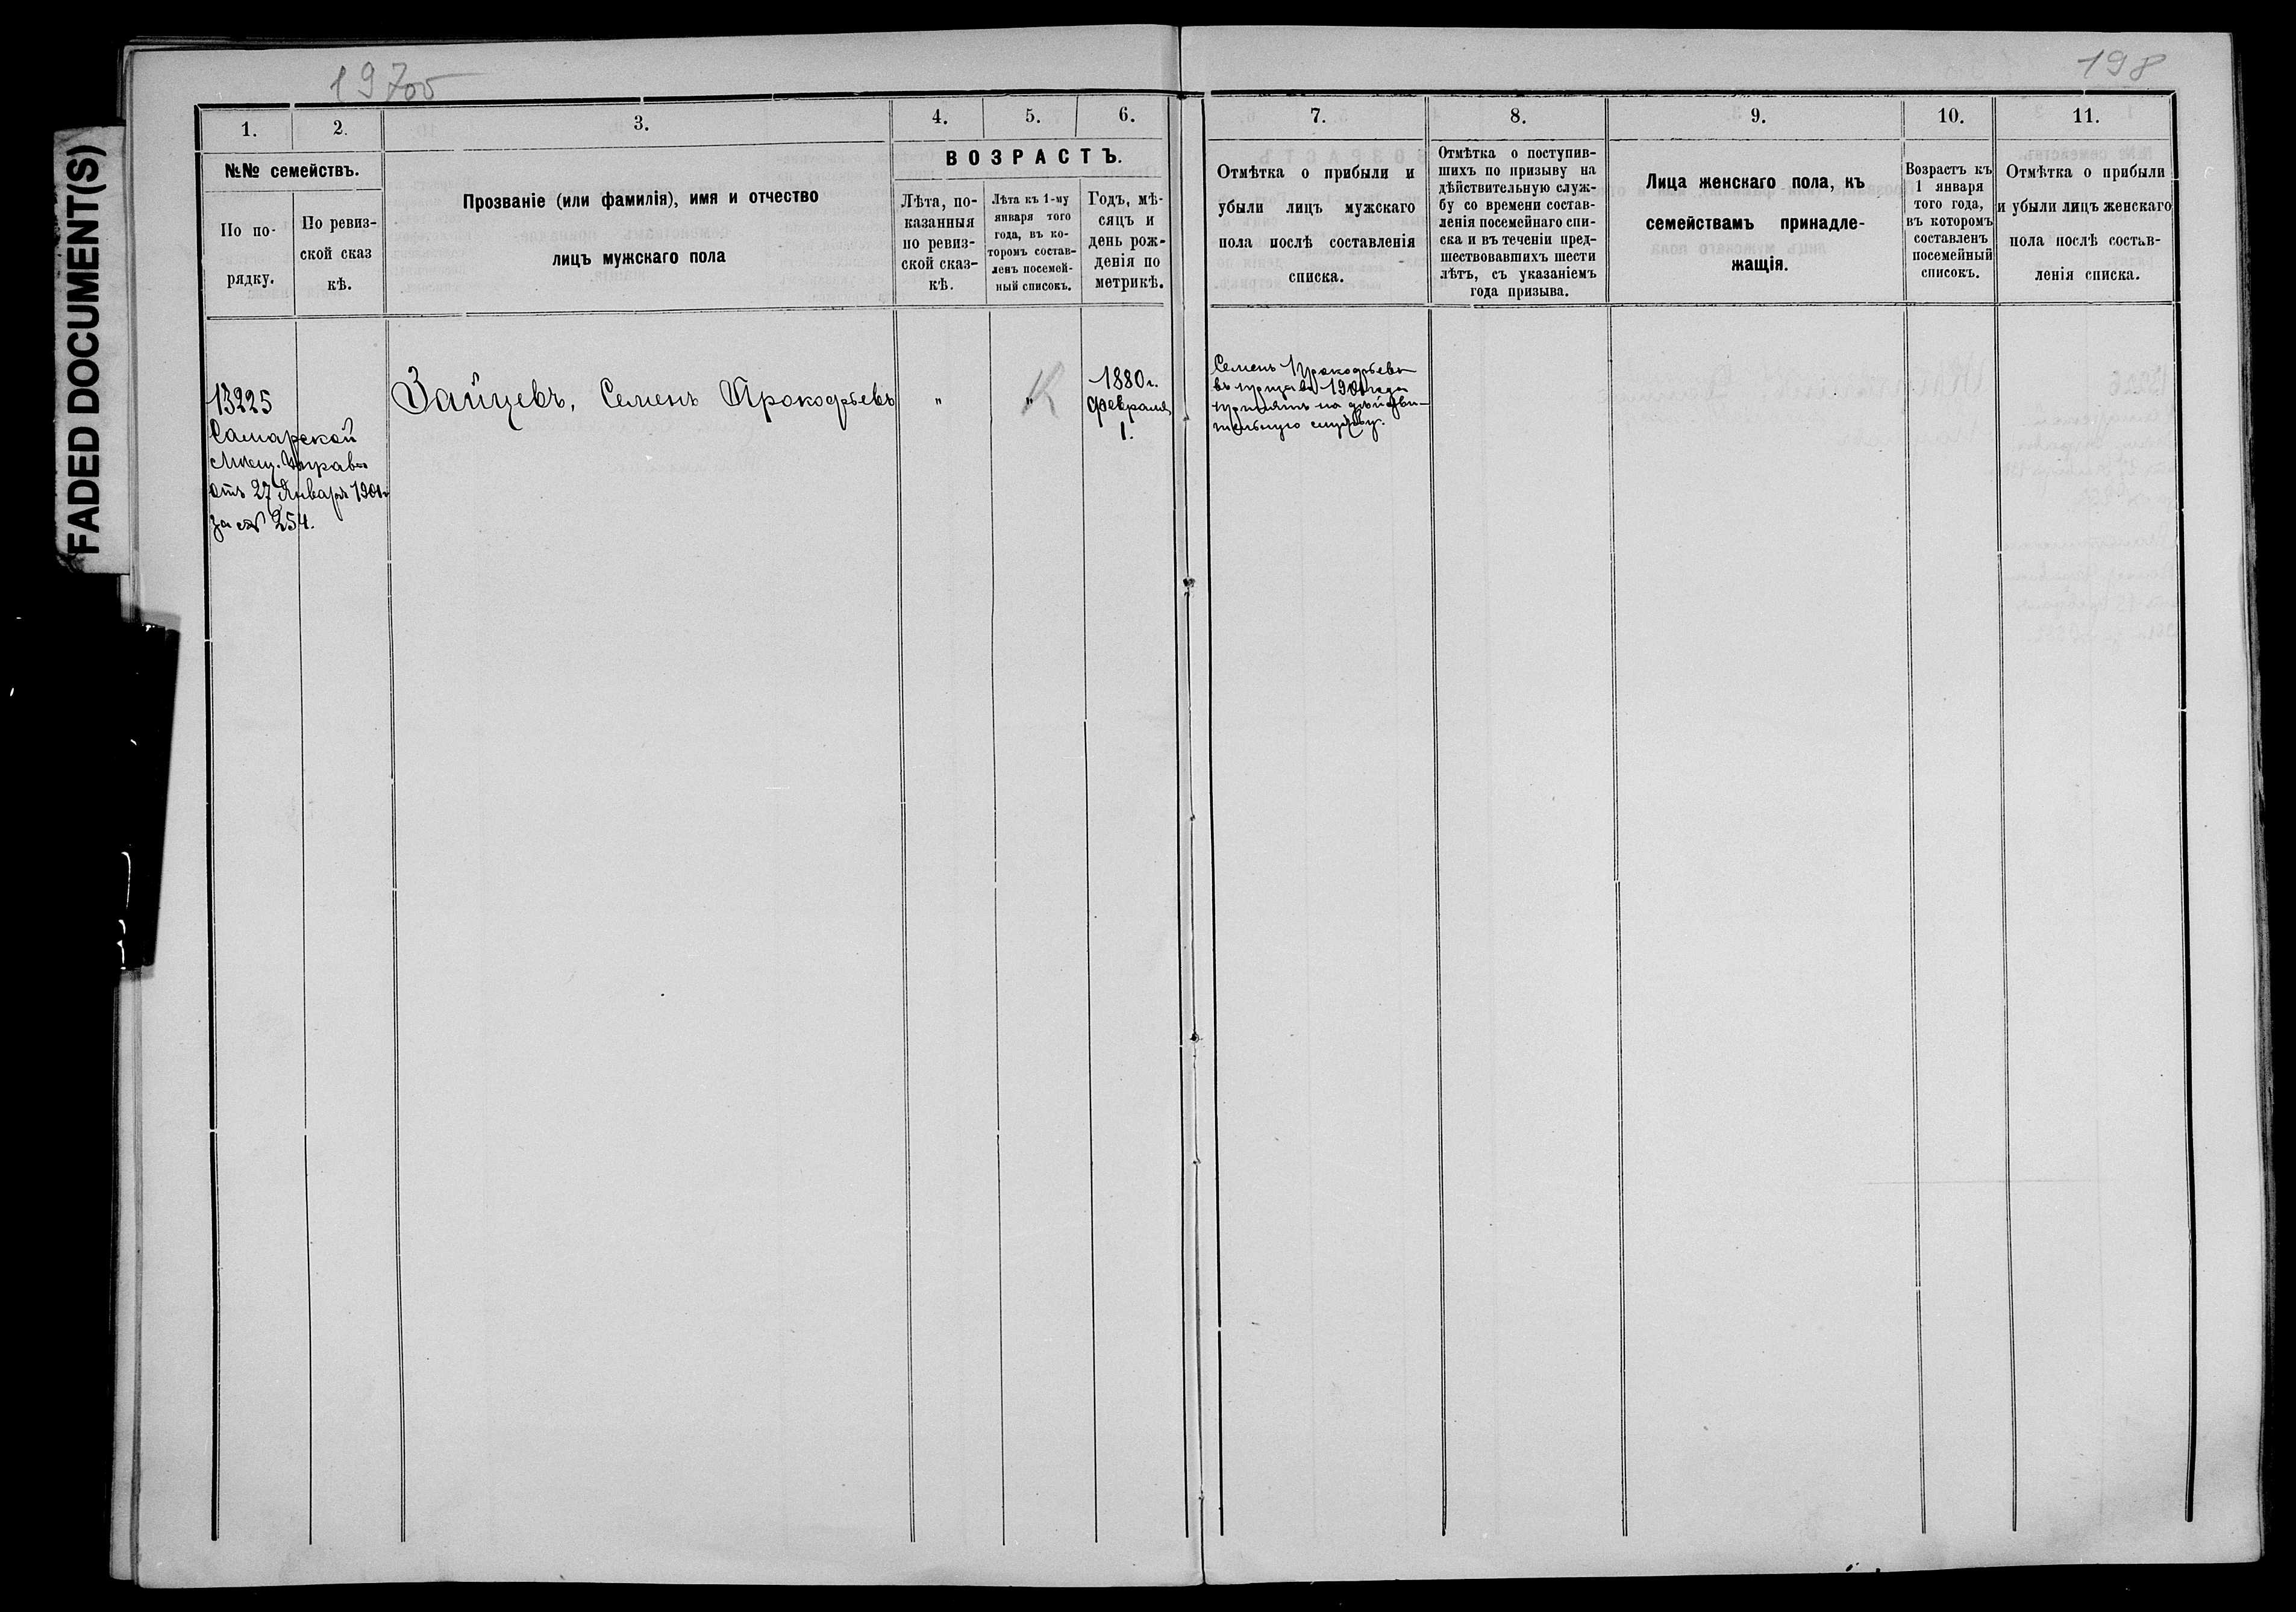 FADED DOCUMENT(S)
197об
198
1.
2.
3.
4.
5.
6.
7.
8.
9.
10.
11.
№№ семействъ.
По по-
рядку.
По ревиз-
ской сказ
кѣ.
Прозваніе (или фамилія), имя и отчество
лицъ мужскаго пола
ВОЗРАСТЪ.
Лѣта, по-
казанныя
по ревиз-
ской сказ-
кѣ.
Лѣта къ 1-му
января того
года, въ ко-
торомъ состав-
ленъ посемей-
ный списокъ.
Годъ, мѣ-
сяцъ и
день рож-
денія по
метрикѣ.
Отмѣтка о прибыли и
убыли лицъ мужскаго
пола послѣ составленія
списка.
Отмѣтка о поступив-
шихъ по призыву на
дѣйствительную служ-
бу со времени состав-
ленія посемейнаго спи-
ска и въ теченіи пред-
шествовавшихъ шести
лѣтъ, съ указаніемъ
года призыва.
Лица женскаго пола, къ
семействамъ принадле-
жащія.
Возрастъ къ
1 января
того года,
въ которомъ
составленъ
посемейный
списокъ.
Отмѣтка о прибыли
и убыли лицъ женскаго
пола послѣ состав-
ленія списка.
13225
Самарской
Мѣщ. Управы
отъ 27 Января 1901г
за № 254.
Зайцевъ, Семенъ Прокофьевъ
"
"
К
1880г.
февраля
1.
Семенъ Прокофьевъ
въ призывъ 1901 года
принятъ на дѣйстви-
тельную службу.